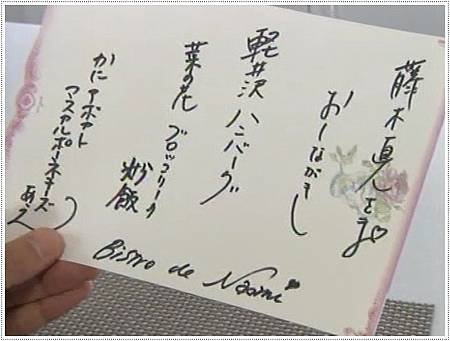 藤木直人さま♡
おしながき
軽井沢ハンバーグ
菜の花 ブロッコリーの
炒飯
かに アボカド
マスカルポーネチーズ
あえ
Bistro de Naomi